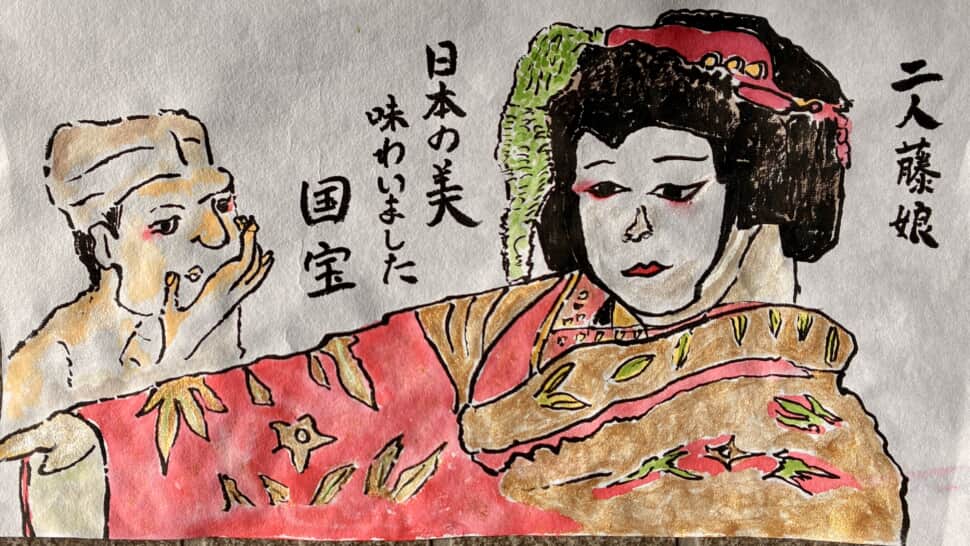 二人藤娘
日本の美
味わいました
国宝